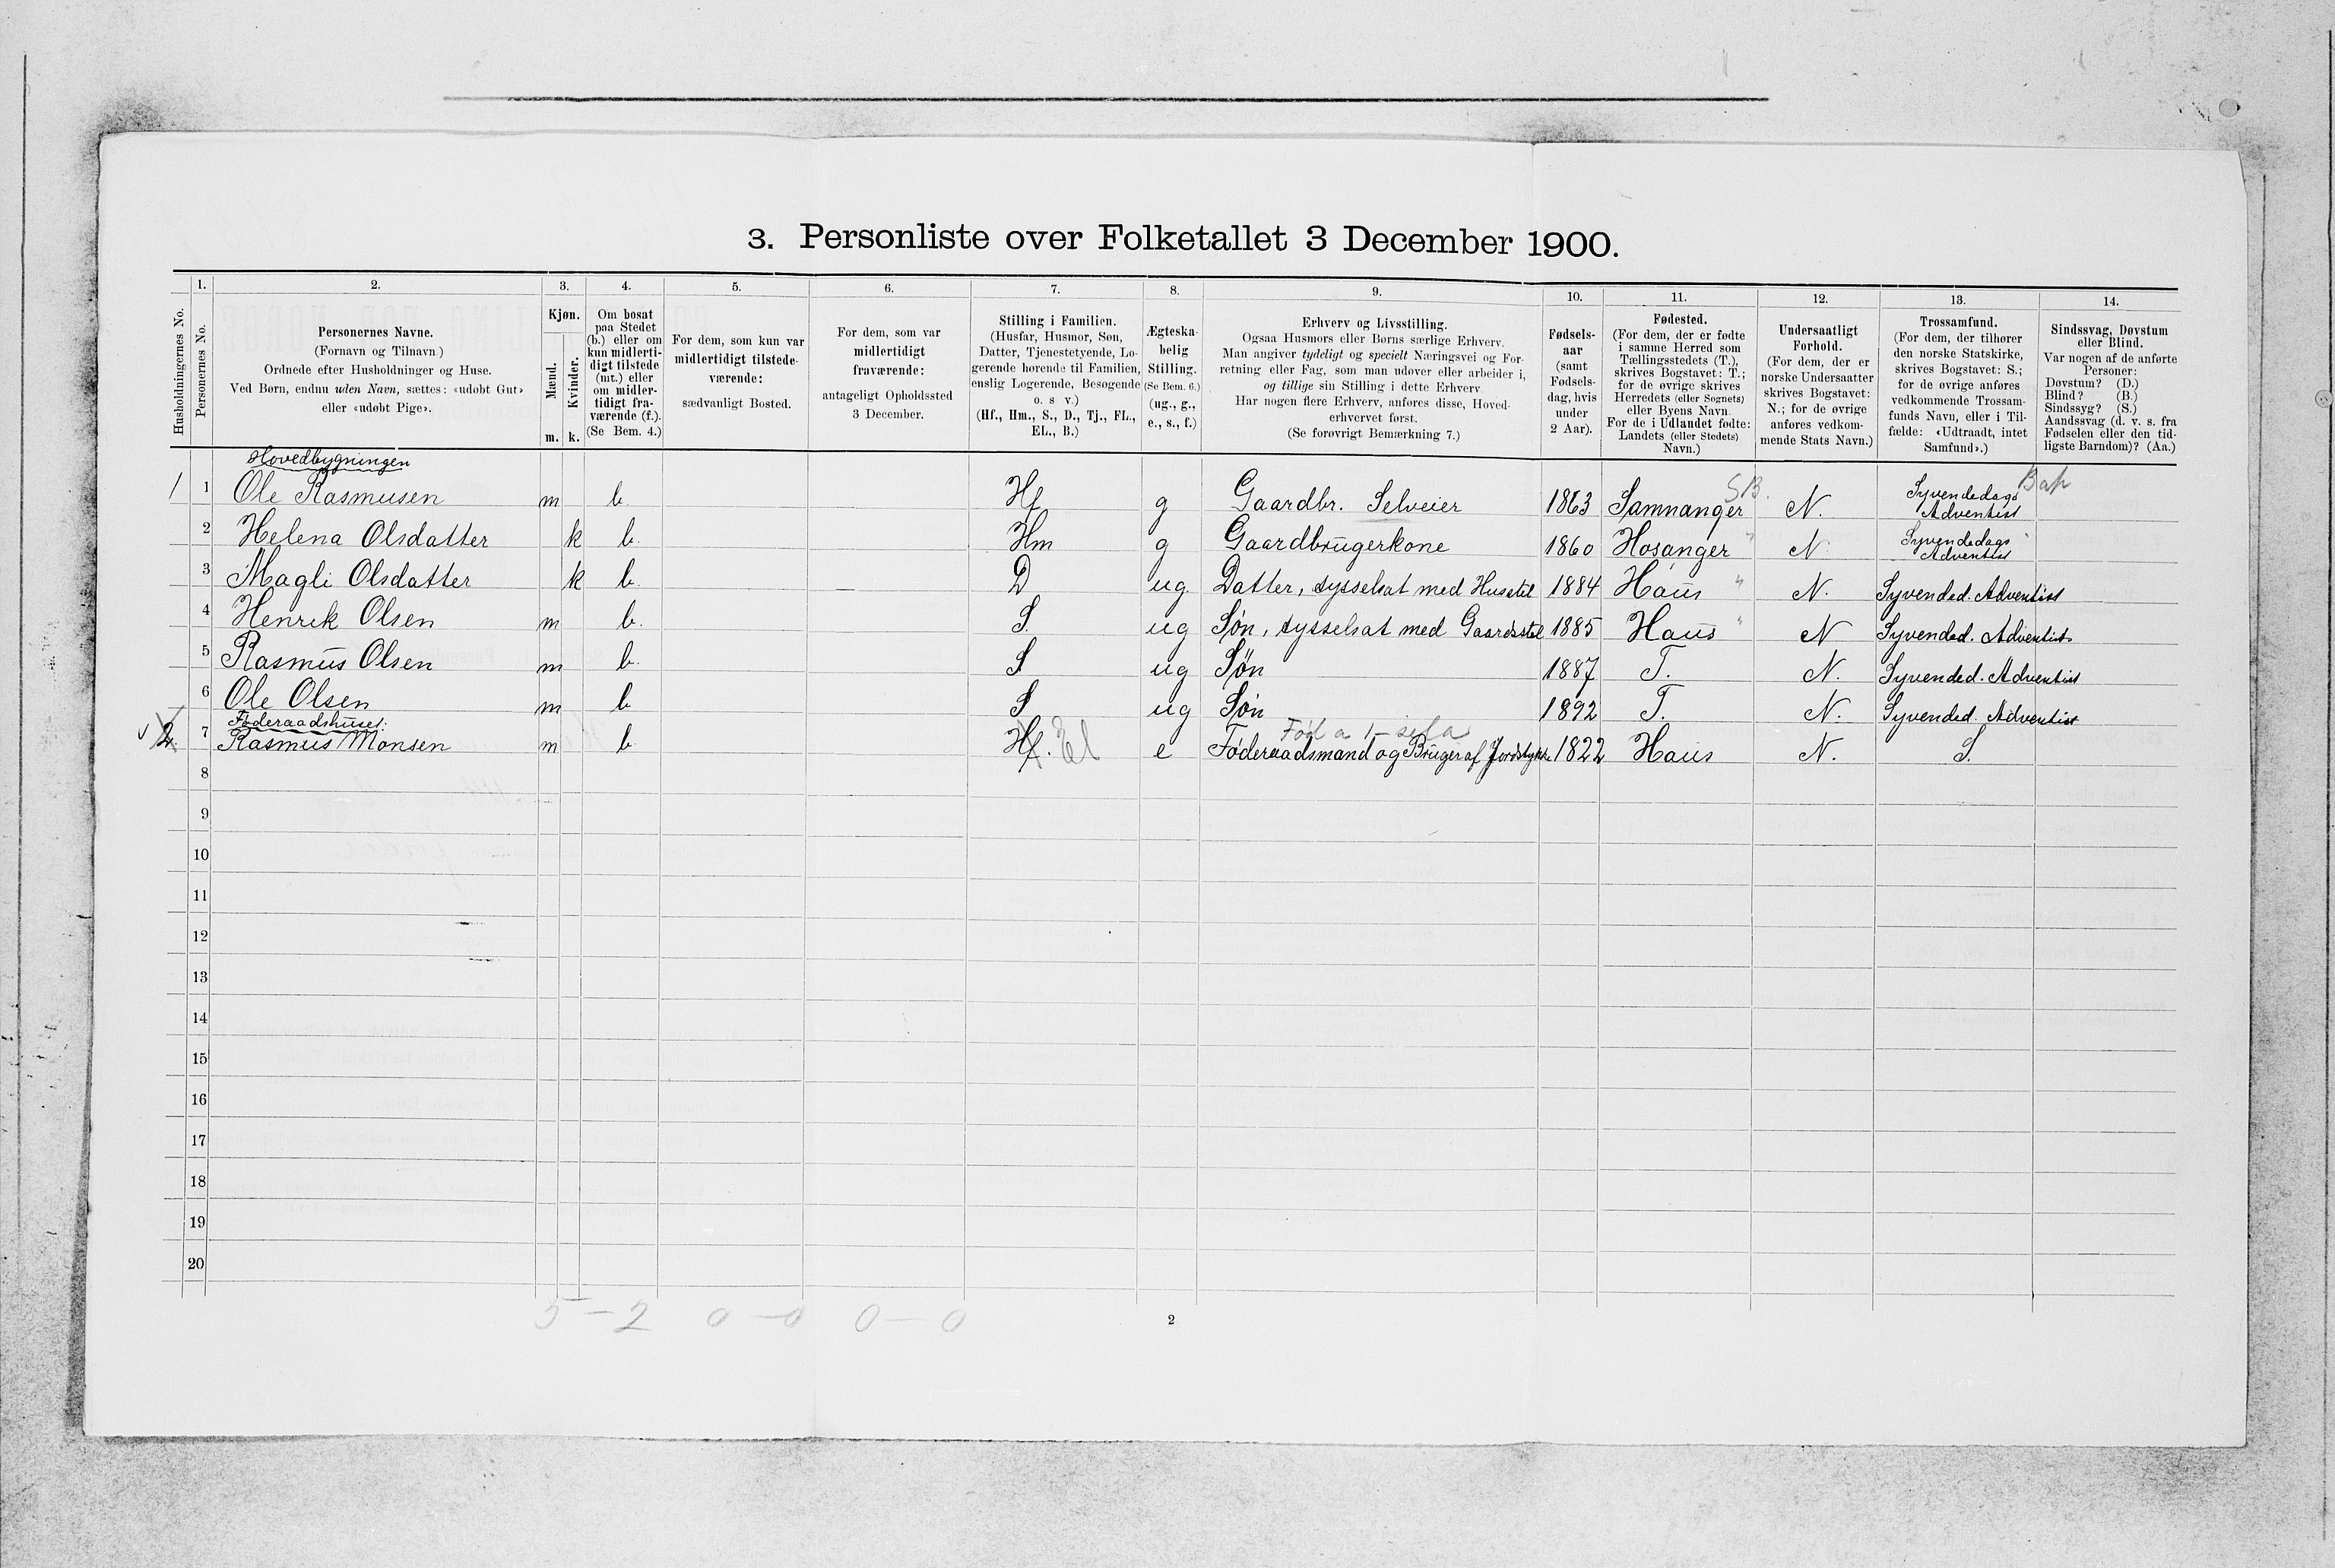 3. Personliste over Folketallet 3 December 1900.
Husholdningernes No.
1.
Personernes No.
2.
Personernes Navne.
(Fornavn og Tilnavn.)
Ordnede efter Husholdninger og Huse.
Ved Børn, endnu uden Navn, sættes: «udøbt Gut»
eller «udøbt Pige».
3.
Kjøn.
Mænd.
Kvinder.
m. k.
4.
Om bosat
paa Stedet
(b.) eller om
kun midlerti-
digt tilstede
(mt.) eller
om midler-
tidigt fra-
værende (f.).
(Se Bem. 4.)
5.
For dem, som kun var
midlertidigt tilstede-
værende:
sædvanligt Bosted.
6.
For dem, som var
midlertidigt
fraværende:
antageligt Opholdssted
3 December.
7.
Stilling i Familien.
(Husfar, Husmor, Søn,
Datter, Tjenestetyende, Lo-
gerende hørende til Familien,
enslig Logerende, Besøgende
o. s v.)
(Hf., Hm., S., D., Tj., FL.,
EL., B.)
8.
Ægteska-
belig
Stilling.
(Se Bem. 6.)
(ug., g.,
e., s., f.)
9.
Erhverv og Livsstilling.
Ogsaa Husmors eller Børns særlige Erhverv.
Man angiver tydeligt og specielt Næringsvei og For-
retning eller Fag, som man udøver eller arbeider i,
og tillige sin Stilling i dette Erhverv.
Har nogen flere Erhverv, anføres disse, Hoved-
erhvervet først.
(Se forøvrigt Bemærkning 7.)
10.
Fødsels-
aar
(samt
Fødsels-
dag, hvis
under
2 Aar).
11.
Fødested.
(For dem, der er fødte
i samme Herred som
Tællingsstedets (T.)
skrives Bogstavet: T.;
for de øvrige skrives
Herredets (eller Sognets)
eller Byens Navn.
For de i Udlandet fødte:
Landets (eller Stedets)
Navn.)
12.
Undersaatligt
Forhold.
(For dem, der er
norske Undersaatter
skrives Bogstavet:
N.; for de øvrige
anføres vedkom-
mende Stats Navn.)
13.
Trossamfund.
(For dem, der tilhører
den norske Statskirke,
skrives Bogstavet: S.;
for de øvrige anføres
vedkommende Trossam-
funds Navn, eller i Til-
fælde: «Udtraadt, intet
Samfund».)
14.
Sindssvag, Døvstum
eller Blind.
Var nogen af de anførte
Personer:
Døvstum? (D.)
Blind? (B.)
Sindssyg? (S.)
Aandssvag (d. v. s. fra
Fødselen eller den tid-
ligste Barndom)? (Aa.)
Hovedbygningen
1 1 Ole Rasmusen m b. Hf g Gaardbr. Selveier 1863 Samnanger SB. N. Syvendedags Adventist Bap
2 Helena Olsdatter k b. Hm g Gaardbrugerkone 1860 Hosanger " N Syvendedags Adventist "
3 Magli Olsdatter k b. — D ug. Datter, sysselsat med Husstel 1884 Haus " N. Syvended. Adventist
4 Henrik Olsen m b. S. ug Søn, sysselsat med Gaardsstel 1885 Haus " N Syvended. Adventist
5 Rasmus Olsen m b. S ug Søn 1887 T. N. Syvended. Adventist
6 Ole Olsen m b S ug Søn 1892 T. N. Syvended. Adventist
Føderaadshuset:
2. 7 Rasmus Monsen m b Hf. El e Føderaadsmand og Bruger af Jordstykke 1822 Haus N. S.
8
9
10
11
12
13
14
15
16
17
18
19
20
5 – 2 0 – 0 0 – 0
2